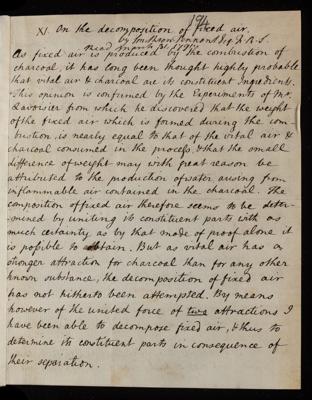 XI. On the decomposition of fixed air.
by Smithson Tennant Esq. F.R.S.
Read March 1791.
As fixed air is produced by the combustion of
charcoal, it has long been thought highly probable
that vital air & charcoal are its constituent Ingredients.
This opinion is confirmed by the Experiments of Mr.
Lavoisier from which he discovered that the weight
of the fixed air which is formed during the com-
bustion, is nearly equal to that of the vital air &
charcoal consumed in the process, & that the small
difference of weight may with great reason be
attributed to the production of water arising from
inflammable air contained in the charcoal. The
composition of fixed air therefore seems to be deter-
mined by uniting its constituent parts with as
much certainty as by that mode of proof alone it
is possible to obtain. But as vital air has a
stronger attraction for charcoal than for any other
known substance, the decomposition of fixed air
has not hitherto been attempted. By means
however of the united force of two attractions I
have been able to decompose fixed air, & thus to
determine its constituent parts in consequence of
their separation.